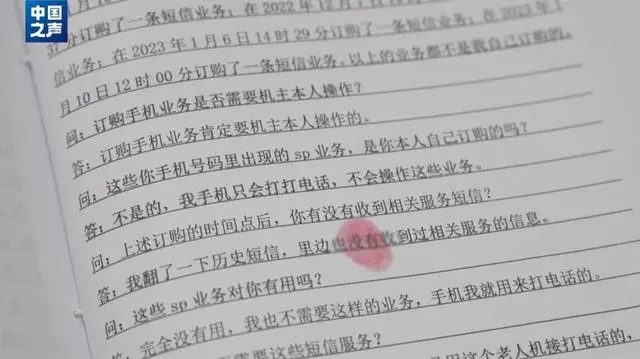 中国之声
分订购了一条短信业务；在2022年12月
信业务；在2023年1月6日14时29分订购了一条短信业务；在2023年1
月10日12时00分订购了一条短信业务。以上的业务都不是我自己订购的。
问：订购手机业务是否需要机主本人操作？
答：订购手机业务肯定要机主本人操作的。
问：这些你手机号码里出现的sp业务，是你本人自己订购的吗？
答：不是的，我手机只会打打电话，不会操作这些业务。
问：上述订购的时间点后，你有没有收到相关服务短信？
答：我翻了一下历史短信，里边也没有收到过相关服务的信息。
问：这些sp业务对你有用吗？
答：完全没有用，我也不需要这样的业务，手机我就用来打电话的。
需要这些短信服务？
用这个老人机接打电话的，